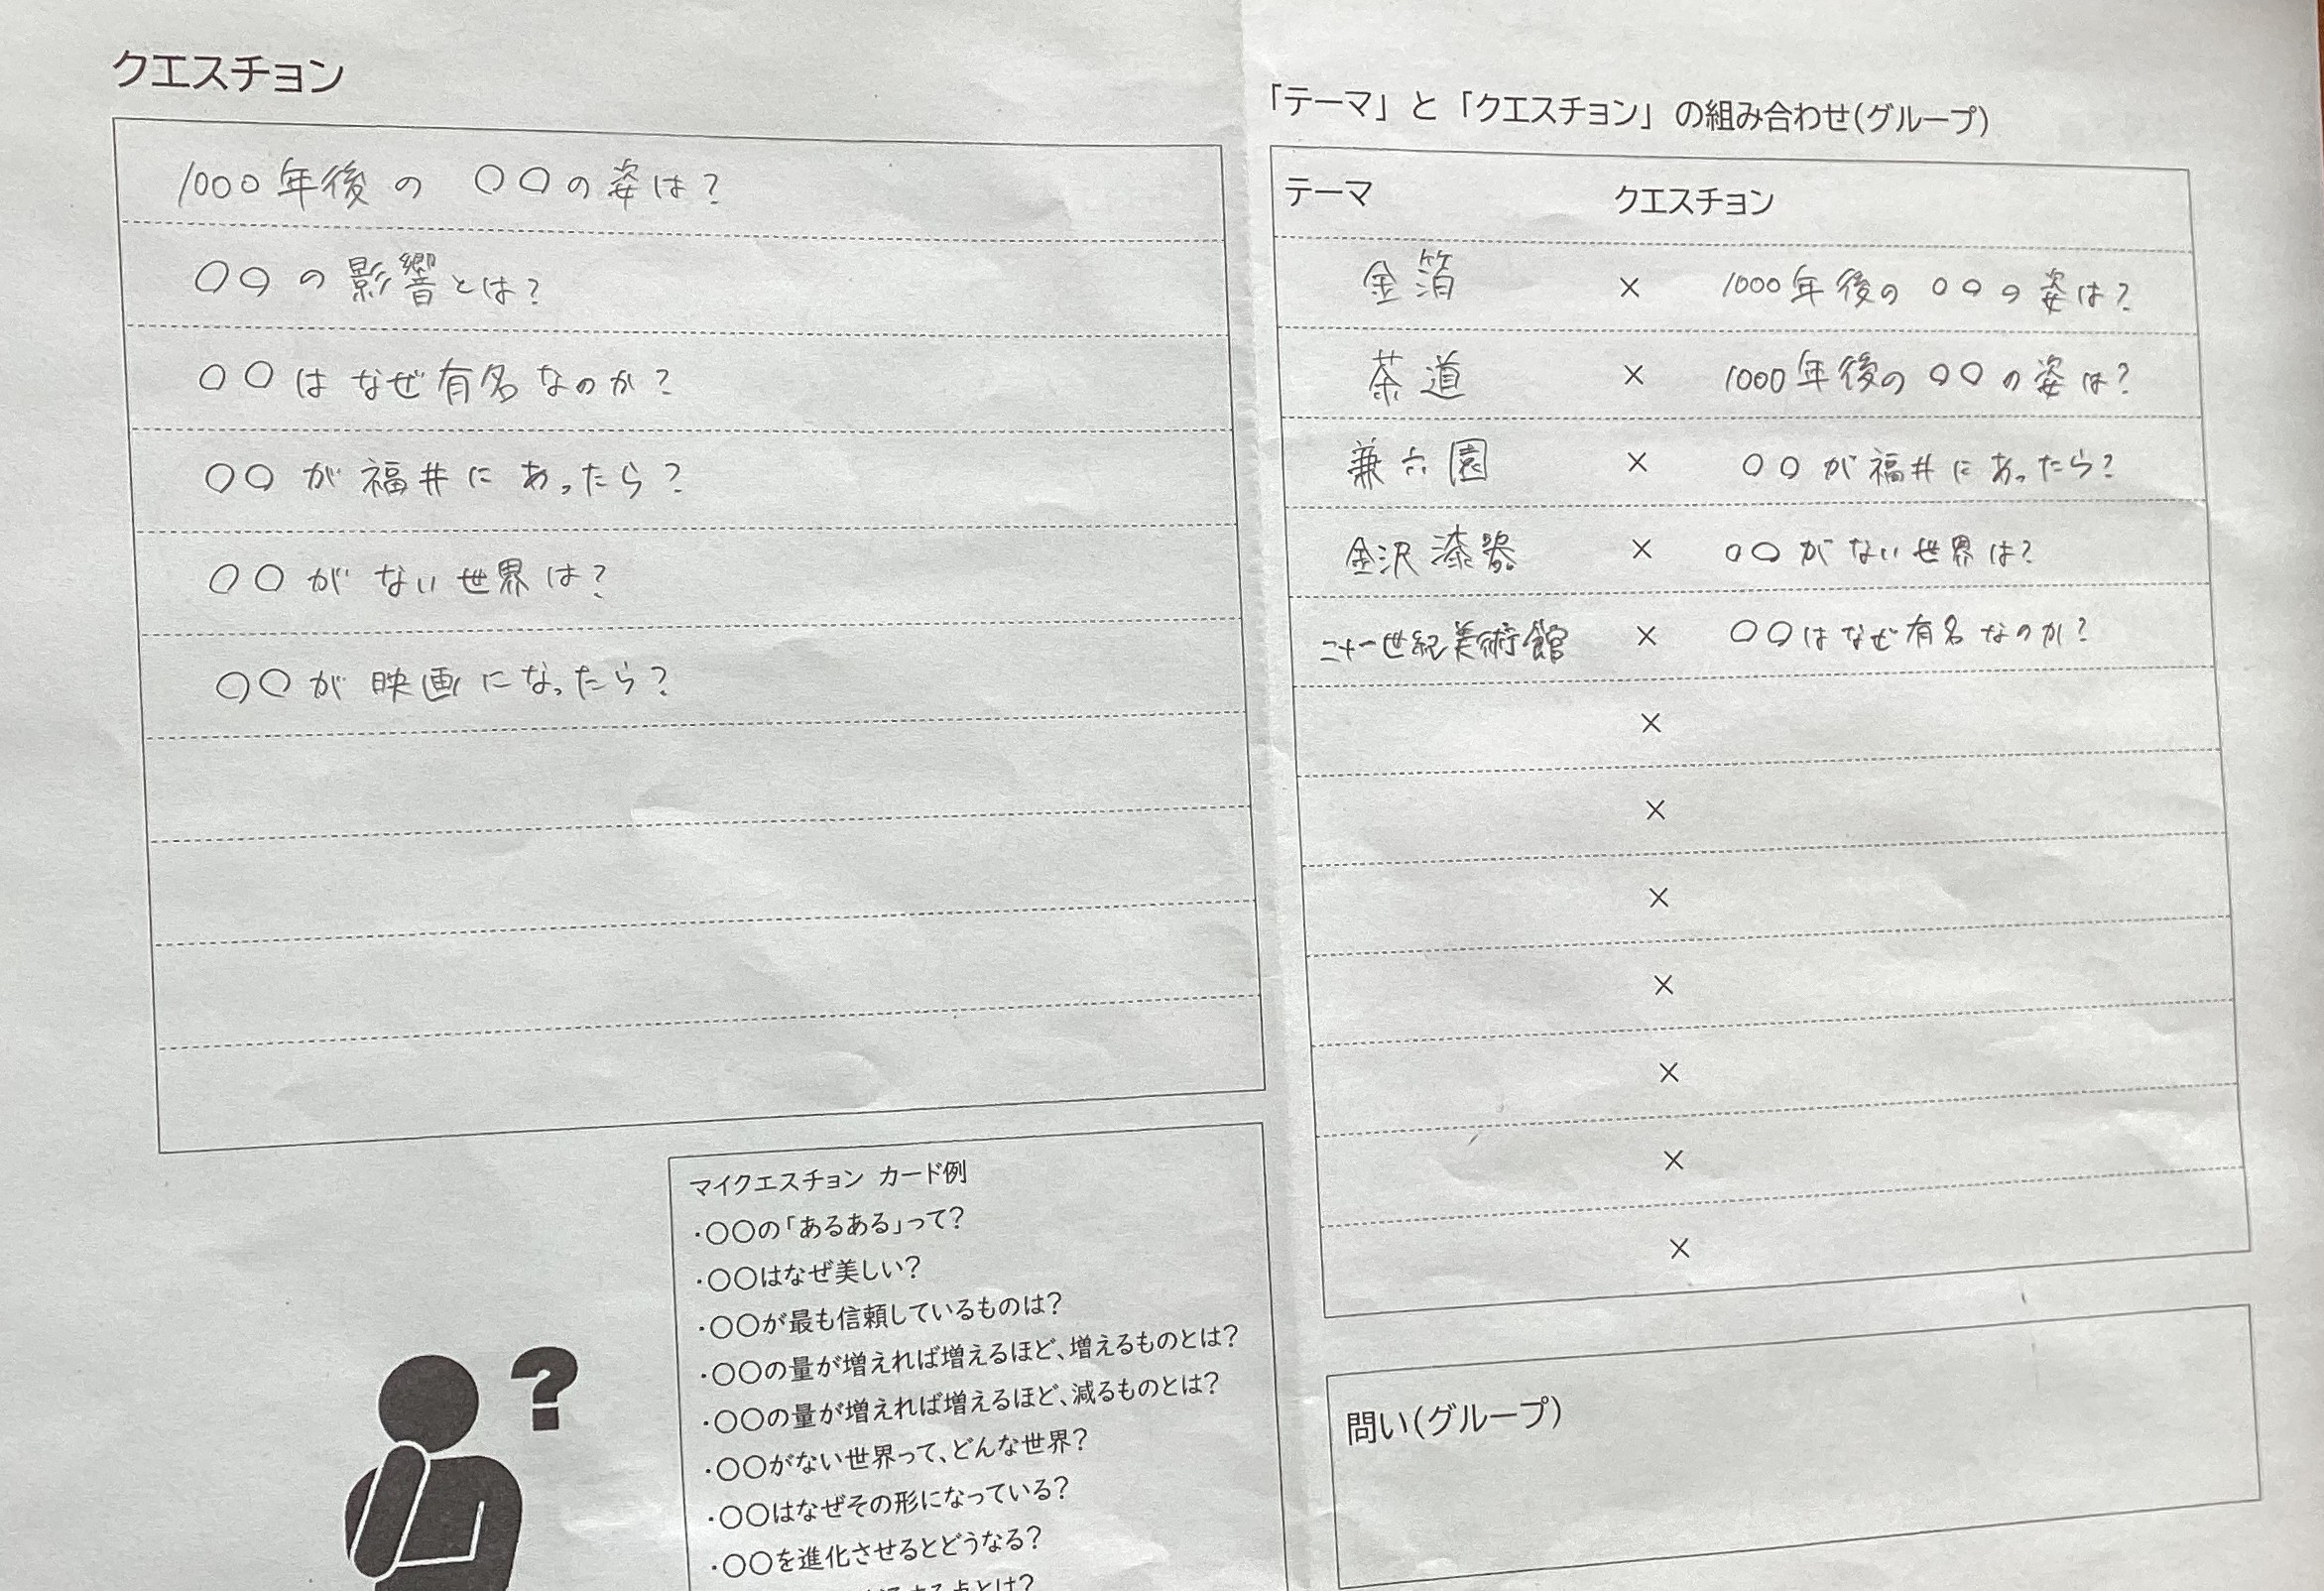 クエスチョン
1000年後の 〇〇の姿は?
〇〇の影響とは?
〇〇はなぜ有名なのか?
〇〇が福井にあったら?
〇〇がない世界は?
〇〇が映画になったら?
マイクエスチョン カード例
・〇〇の「あるある」って?
・〇〇はなぜ美しい?
・〇〇が最も信頼しているものは?
・〇〇の量が増えれば増えるほど、増えるものとは?
・〇〇の量が増えれば増えるほど、減るものとは?
・〇〇がない世界って、どんな世界?
・〇〇はなぜその形になっている?
・〇〇を進化させるとどうなる?
する点とは?
?
「テーマ」と「クエスチョン」の組み合わせ(グループ)
テーマ クエスチョン
金箔 × 1000年後の〇〇の姿は?
茶道 × 1000年後の〇〇の姿は?
兼六園 × 〇〇が福井にあったら?
金沢漆器 × 〇〇がない世界は?
二十一世紀美術館 × 〇〇はなぜ有名なのか?
×
×
×
×
×
×
×
問い(グループ)